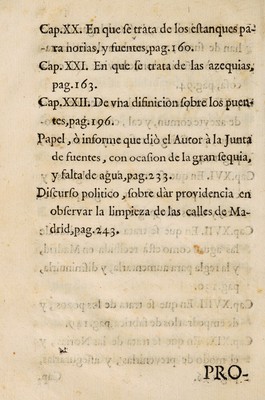 Cap.XX. En que se trata de los estanques pa-
ra norias, y fuentes, pag.160.
Cap.XXI. En que se trata de las azequias,
pag.163.
Cap.XXII. De vna difinicion sobre los puen-
tes, pag.196.
Papel, ò informe que diò el Autor à la Junta
de fuentes, con ocasion de la gran sequia,
y falta de agua, pag.233.
Discurso politico, sobre dàr providencia en
observar la limpieza de las calles de Ma-
drid, pag.243.
PRO-